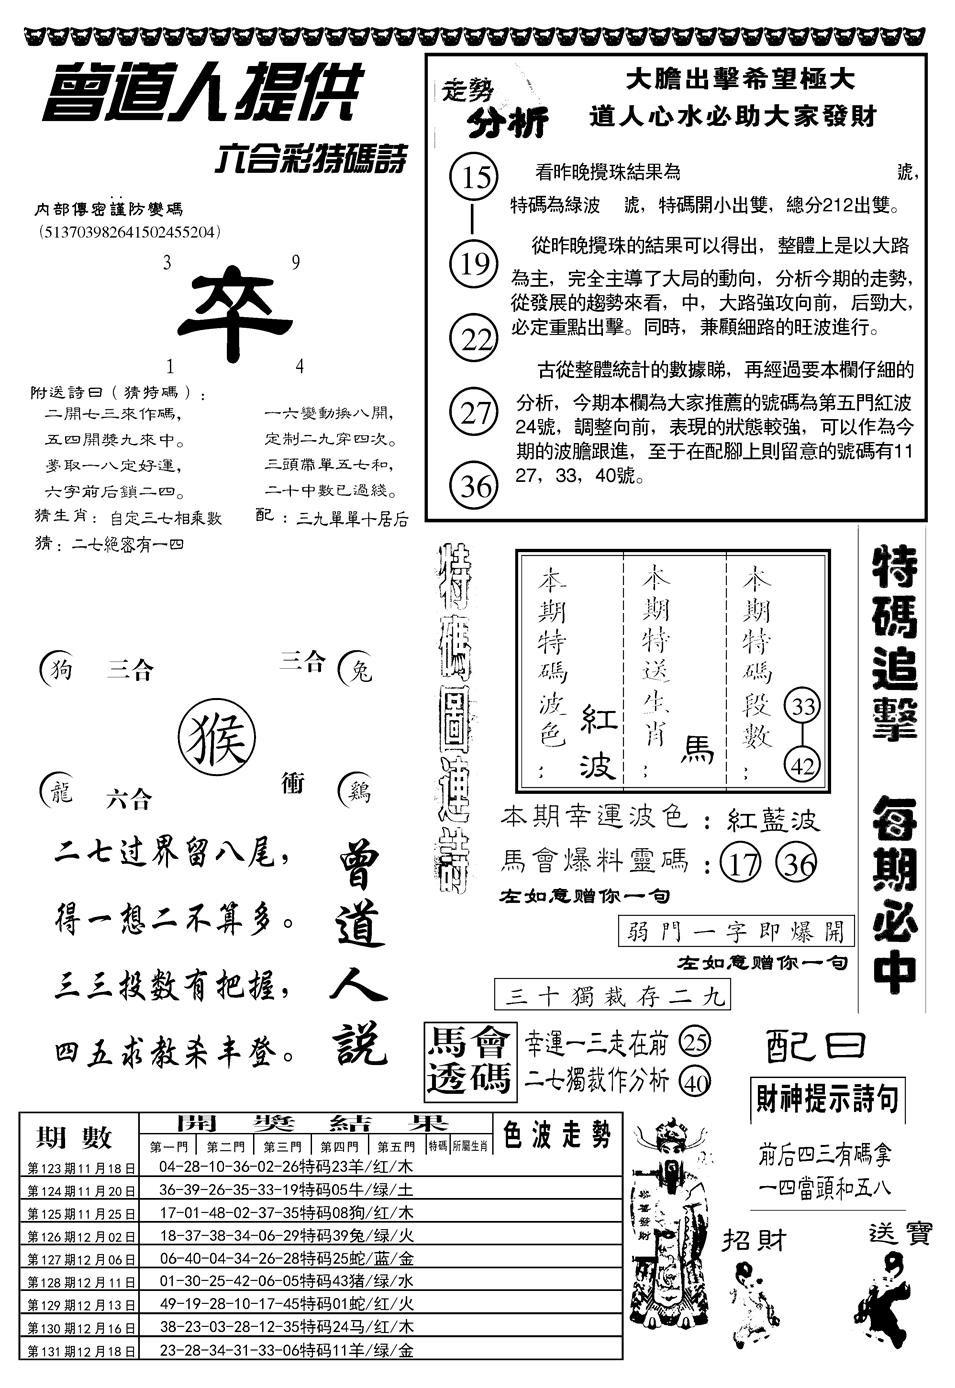 曾道人提供
六合彩特碼詩
内部傳密謹防變碼
（513703982641502455204）
3
9
卒
1
4
附送詩曰（猜特碼）：
二開七三來作碼，
一六變動換八開，
五四開獎九來中。
定制二九穿四次。
夢取一八定好運，
三頭帶單五七和，
六字前后鎖二四。
二十中數已過綫。
猜生肖：自定三七相乘數
配：三九單單十居后
猜：二七絕密有一四
走勢
分析
大膽出擊希望極大
道人心水必助大家發財
15
19
22
27
36
看昨晚攪珠結果為 號，
特碼為綠波 號，特碼開小出雙，總分212出雙。
從昨晚攪珠的結果可以得出，整體上是以大路
為主，完全主導了大局的動向，分析今期的走勢，
從發展的趨勢來看，中，大路強攻向前，后勁大，
必定重點出擊。同時，兼顧細路的旺波進行。
古從整體統計的數據睇，再經過要本欄仔細的
分析，今期本欄為大家推薦的號碼為第五門紅波
24號，調整向前，表現的狀態較強，可以作為今
期的波膽跟進，至于在配腳上則留意的號碼有11
27，33，40號。
狗
三合
三合
兔
猴
龍
六合
衝
鷄
二七过界留八尾，
得一想二不算多。
三三投数有把握，
四五求教杀丰登。
曾道人説
特碼圖連詩
本期特碼波色：
紅波
本期特送生肖：
馬
本期特碼段數：
33
42
本期幸運波色：紅藍波
馬會爆料靈碼：17 36
左如意赠你一句
弱門一字即爆開
左如意赠你一句
三十獨裁存二九
特碼追擊 每期必中
馬會透碼
幸運一三走在前 25
二七獨裁作分析 40
配曰
財神提示詩句
前后四三有碼拿
一四當頭和五八
招財
送寶
恭喜發財
期數
開獎結果
色波走勢
第一門 第二門 第三門 第四門 第五門 特碼 所屬生肖
第123期11月18日 04-28-10-36-02-26特码23羊/红/木
第124期11月20日 36-39-26-35-33-19特码05牛/绿/土
第125期11月25日 17-01-48-02-37-35特码08狗/红/木
第126期12月02日 18-37-38-34-06-29特码39兔/绿/火
第127期12月06日 06-40-04-34-26-28特码25蛇/蓝/金
第128期12月11日 01-30-25-42-06-05特码43猪/绿/水
第129期12月13日 49-19-28-10-17-45特码01蛇/红/火
第130期12月16日 38-23-03-28-12-35特码24马/红/木
第131期12月18日 23-28-34-31-33-06特码11羊/绿/金